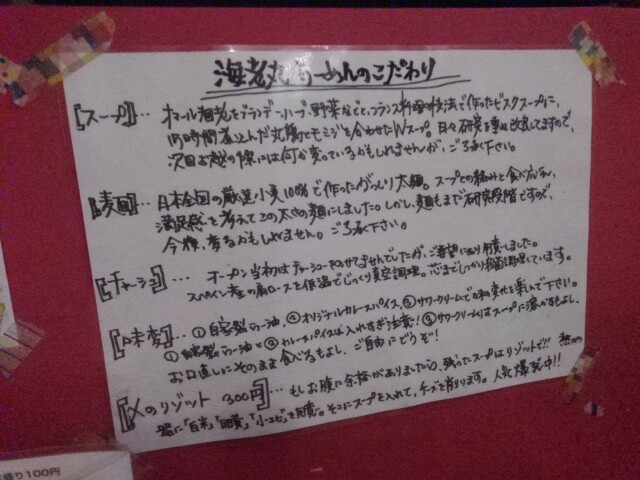 海老丸らーめんのこだわり
[スープ]… オマール海老をブランデー、ハーブ、野菜などと、フランス料理の技法で作ったビスクスープに、
15時間煮込んだ丸鶏とモミジを合わせたWスープ。日々研究を重ね改良してますので、
次回お越の際には何か変っているかもしれませんが、ご了承下さい。
[麺]… 日本全国の厳選小麦100%で作ったがっしり太麺。スープとの絡みと食べ応え、
満足感を考えてこの太さの麺にしました。しかし麺もまだ研究段階ですので、
今後、変るかもしれません。ご了承下さい。
[チャーシュー]… オープン当初はチャーシューをのせてませんでしたが、ご要望により用意しました。
スペイン産の肩ロースを低温でじっくり真空調理。芯までしっかり殺菌処理しています。
[味変]… ①自家製ラー油、②オリジナルカレースパイス、③サワークリームで味の変化を楽しんで下さい。
①自家製ラー油と②カレースパイスは入れすぎ注意! ③サワークリームはスープに溶かすもよし、
お口直しにそのまま食べるもよし、ご自由にどうぞ!
[〆のリゾット 300円]… もしお腹に余裕がありましたら、残ったスープはリゾットで!!
器に「白米」「小エビ」を用意。そこにスープを入れて、チーズを削ります。人気爆発中!!
100円